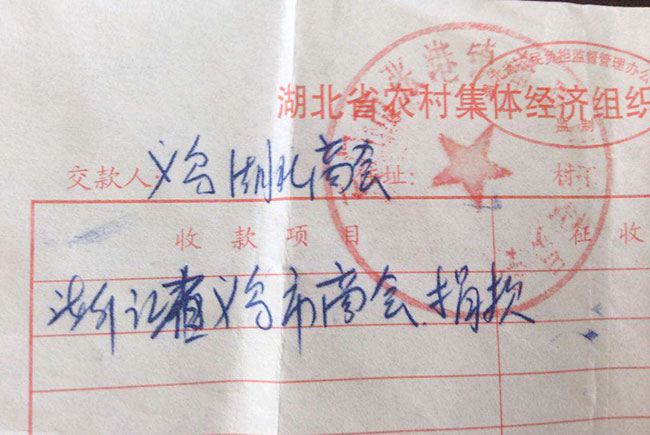 张港镇
农民负担监督管理办公
监制
湖北省农村集体经济组织
交款人:义乌湖北商会 址: 村
收款项目 征收
浙江省义乌市商会.捐款